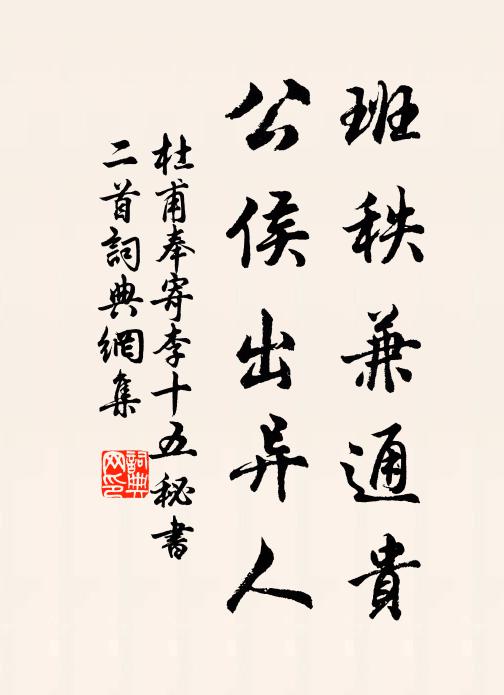 班秩兼通貴
公侯出异人
杜甫奉寄李十五秘書
二首詞典網集
詞典
网印